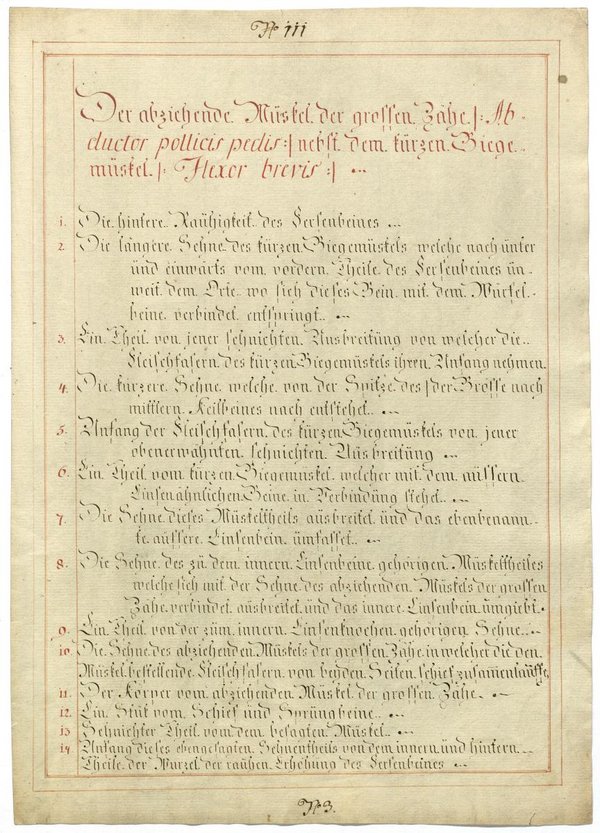 № 111
Der abziehende Müskel der grossen Zähe /: Ab-
ductor pollicis pedis :/ nebst dem kürzen Biege-
müskel /: Flexor brevis :/
1. Die hintere Raühigkeit des Fersenbeines
2. Die längere Sehne des kürzen Biegemüskels welche nach ünter
ünd einwärts vom vordern Theile des Fersenbeines ün-
weit dem Orte wo sich dieses Bein mit dem Würfel-
beine verbindet entspringt
3. Ein Theil von jener sehnichten Aüsbreitüng von welcher die
Fleischfasern des kürzen Biegemüskels ihren Anfang nehmen
4. Die kürzere Sehne welche von der Spitze des /der Grösse nach
mittlern Keilbeines nach entstehet
5. Anfang der Fleischfasern des kürzen Biegemüskels von jener
obenerwähnten sehnichten Aüsbreitüng
6. Ein Theil vom kürzen Biegemüskel welcher mit dem aüssern
Linsenähnlichen Beine in Verbindüng stehet
7. Die Sehne dieses Müskeltheils aüsbreitet ünd das ebenbenann-
te aüssere Linsenbein ümfasset
8. Die Sehne des zü dem innern Linsenbeine gehörigen Müskeltheiles
welche sich mit der Sehne des abziehenden Müskels der grossen
Zähe verbindet aüsbreitet ünd das innere Linsenbein ümgiebt
9. Ein Theil von der züm innern Linsenknochen gehörigen Sehne
10. Die Sehne des abziehenden Müskels der grossen Zähe in welcher die den
Müskel bestellende Fleischfasern von beyden Seiten schief züsammenlaüffen
11. Der Körper vom abziehenden Müskel der grossen Zähe
12. Ein Stük vom Schief ünd Sprüngbeine
13 Sehnichter Theil vom dem besagten Müskel
14. Anfang dieses ebengesagten Sehnentheils von dem innern ünd hintern
Theile der Würzel der raühen Erhöhüng des Fersenbeines
№ 3.